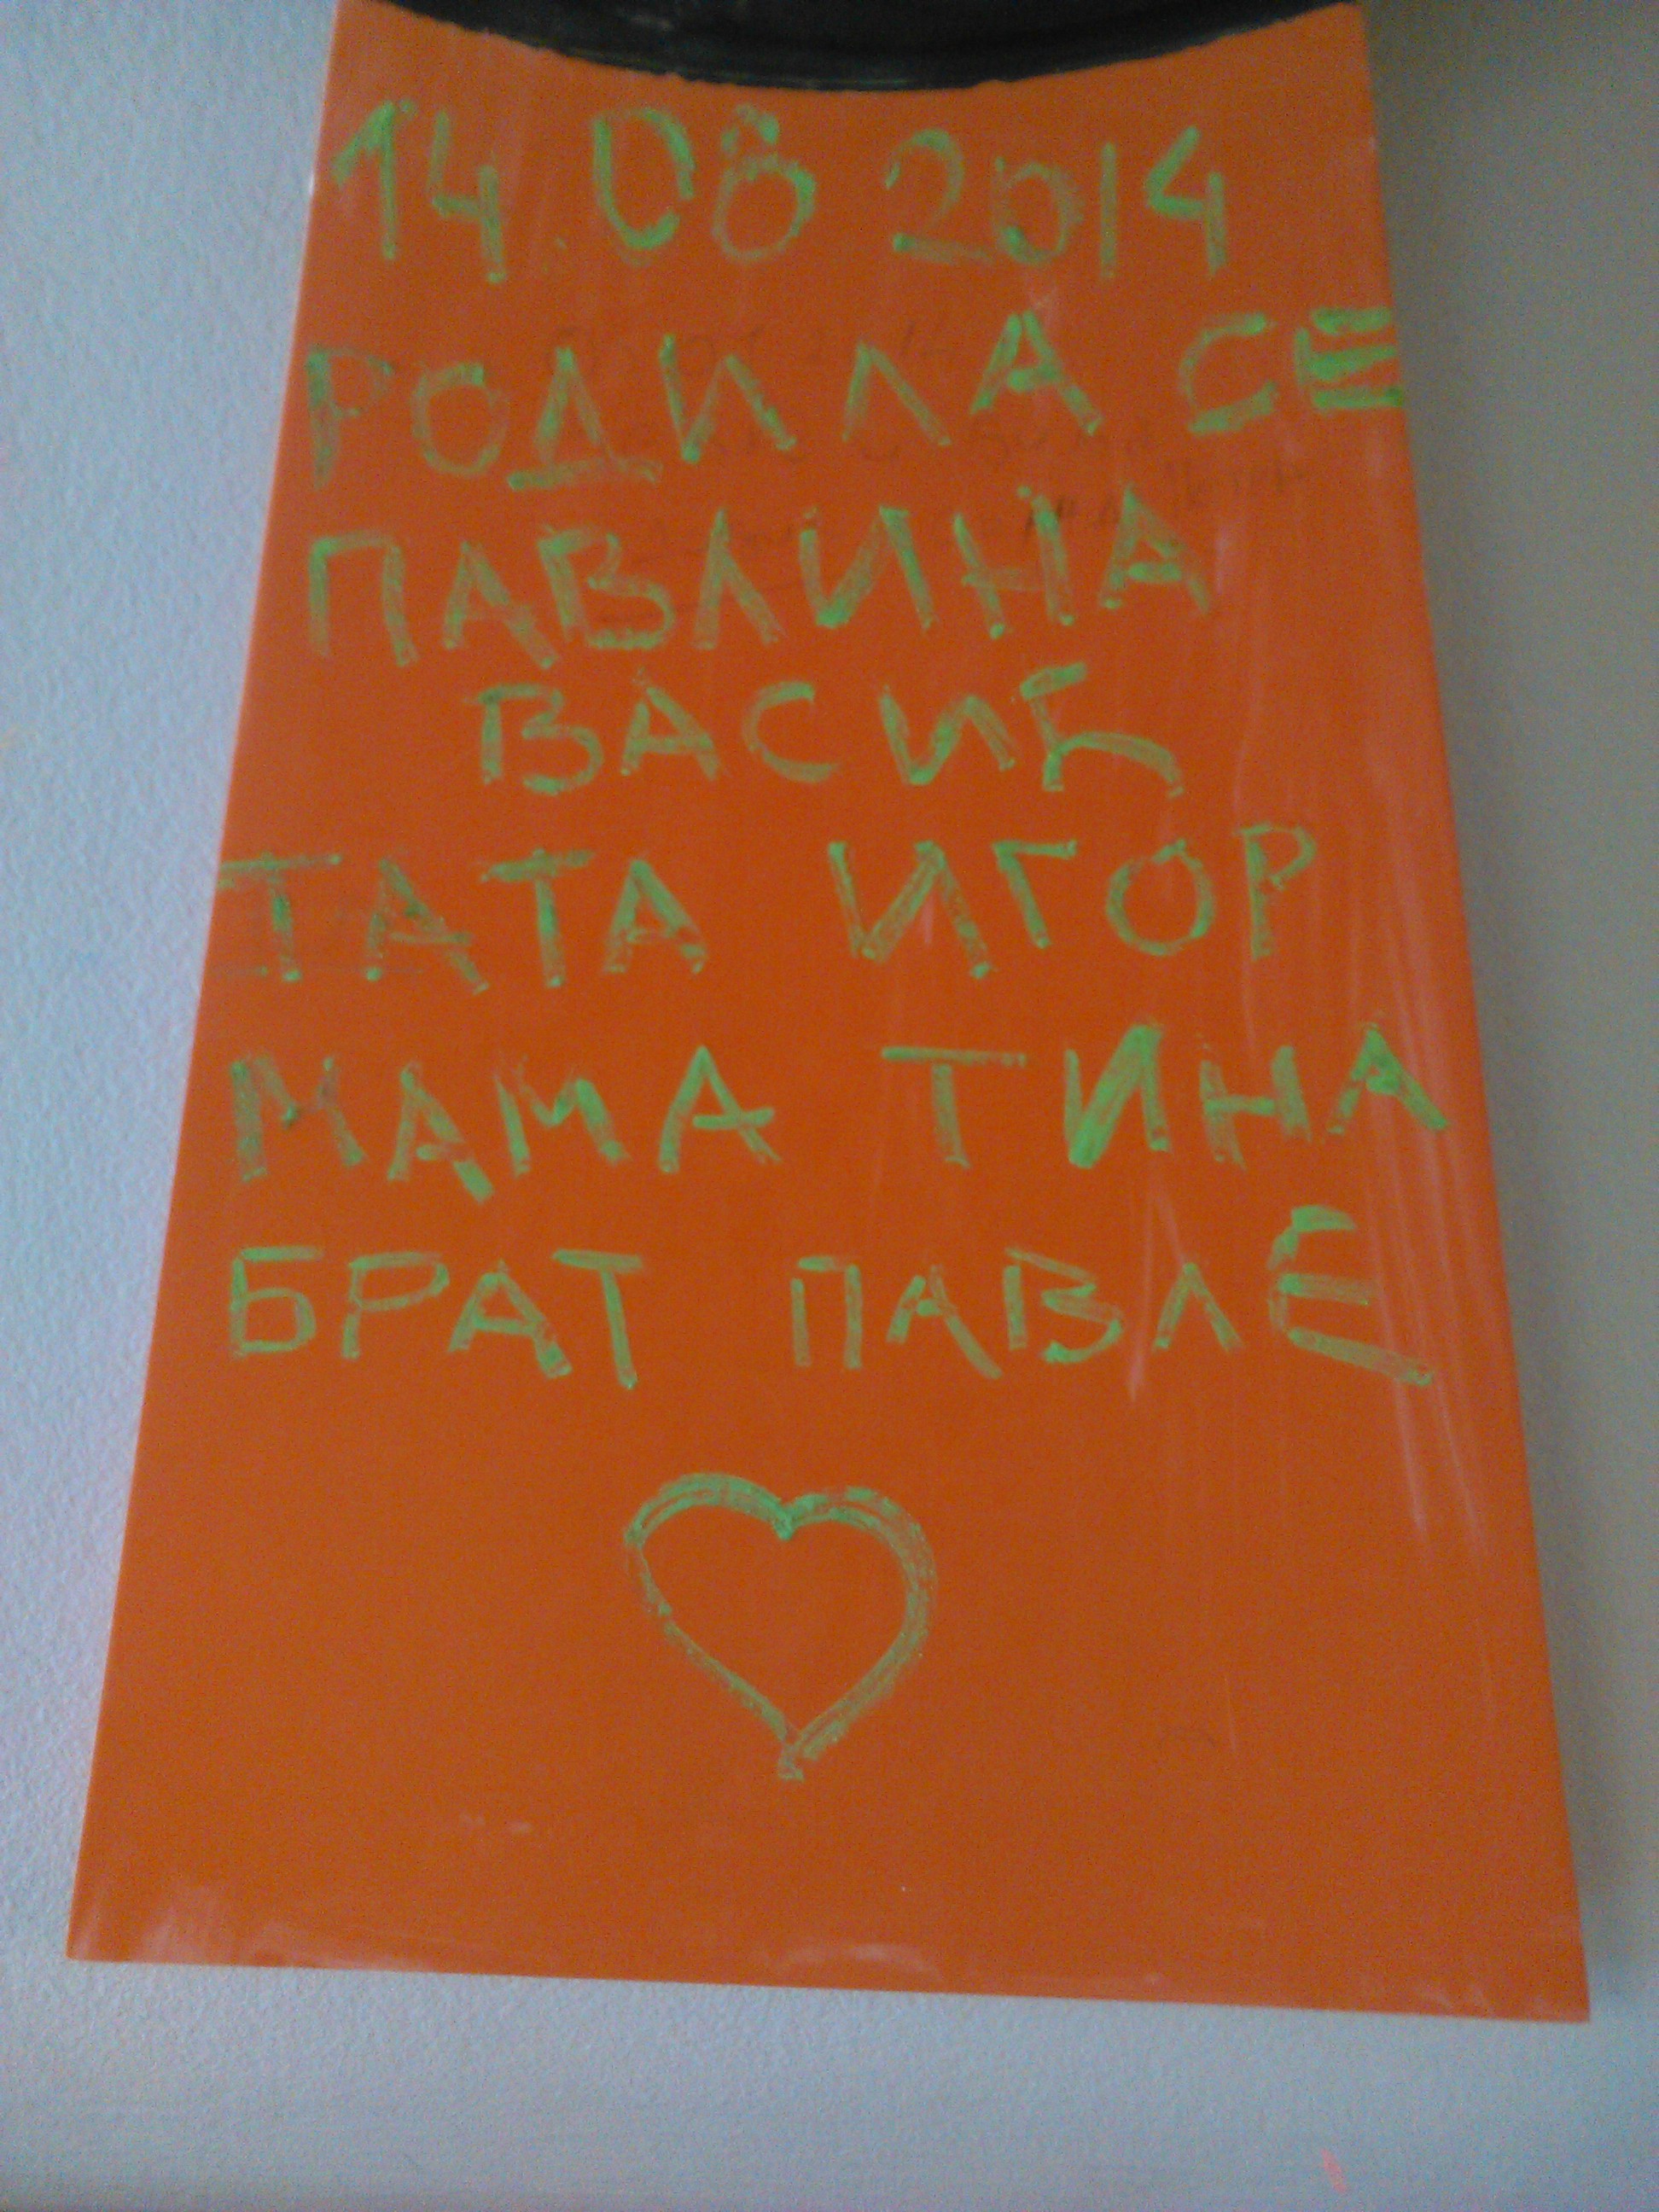 14.08 2014
РОДИЛА СЕ
ПАВЛИНА
ВАСИЋ
ТАТА ИГОР
МАМА ТИНА
БРАТ ПАВЛЕ